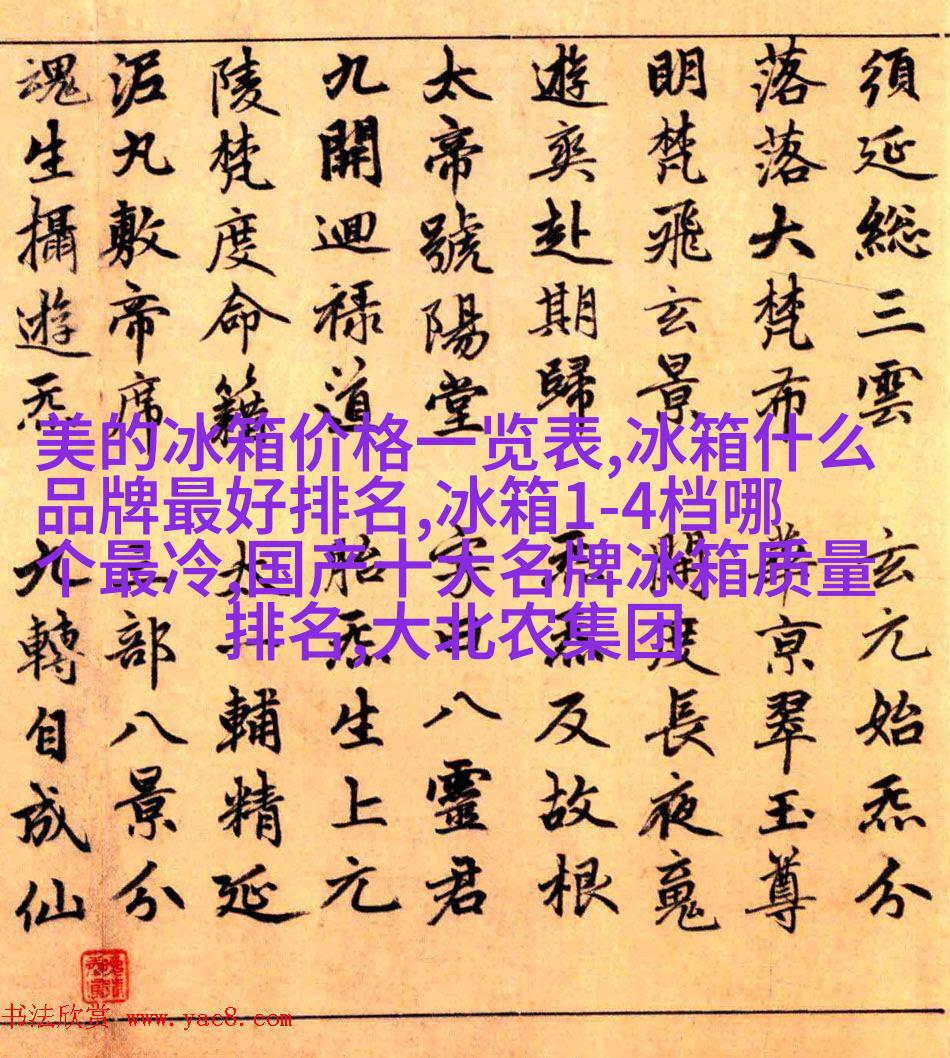 須延総三雲玄元始炁分
落落大梵布華京翠玉尊
明梵飛玄景開度長夜魂
遊爽赴期歸炁反故根
太帝號陽堂字曰八靈君
九開迴祿道胎炁生上元
陵梵度命籍太一輔精延
泥丸敷帝席三部八景分
魂生攝遊炁九轉自成仙
美的冰箱价格一览表,冰箱什么
品牌最好排名,冰箱1-4档哪
个最冷,国产十大名牌冰箱质量
排名,大北农集团
书法欣赏 www.yac8.com